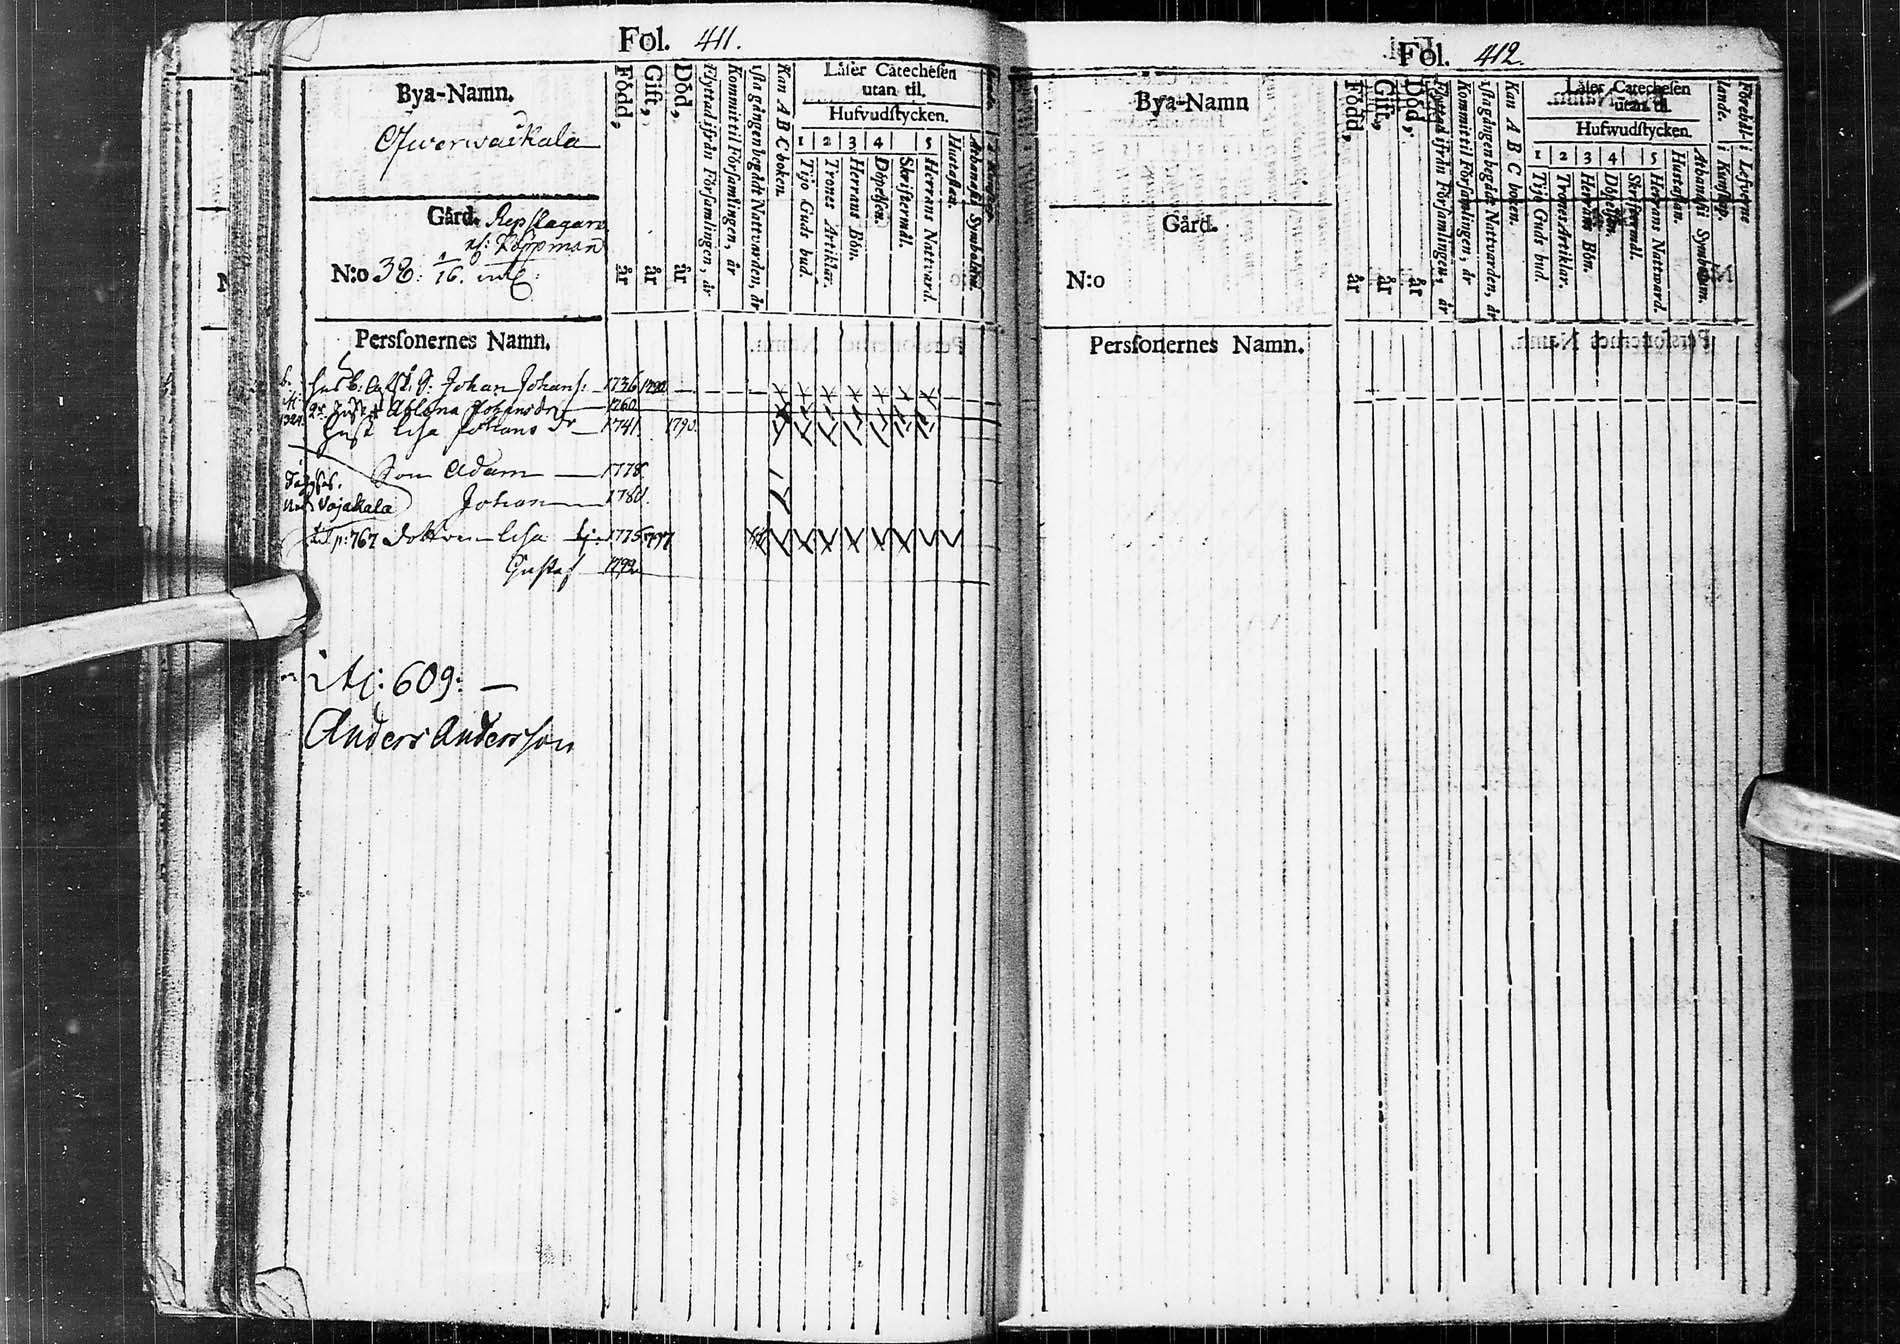 Fol. 411.
Bya-Namn.
Ofwerwaikala
Gård. Repslagare
N:o 38: 1/16.
Född, år
Gift, år
Död, år
Flyttad ifrån Församlingen, år
Kommit til Församlingen, år
1sta gången begådt Nattvarden, år
Kan A B C boken.
Läser Catechesen
utan til.
Hufvudstycken.
1 2 3 4 5
Tijo Guds bud.
Trones Artiklar.
Herrans Bön.
Döpelsen.
Skriftermål.
Herrans Nattvard.
Hustaflan.
Athanasii Symbolum.
Personernes Namn.
Johan Johans: 1736
Johans dr 1760
Hust Lisa Johans dr 1741 1790.
Son Adam 1778
Johan 1780.
Vojakala
p: 767 Dottren Lisa 1775
Gustaf 1792
609:
Anders Andersson
Fol. 412.
Bya-Namn
Gård.
N:o
Född, år
Gift, år
Död, år
Flyttad ifrån Församlingen, år
Kommit til Församlingen, år
1sta gången begådt Nattvarden, år
Kan A B C boken.
Läser Catechesen
utan til.
Hufwudstycken.
1 2 3 4 5
Tijo Guds bud.
Trones Artiklar.
Herrans Bön.
Döpelsen.
Skriftermål.
Herrans Natward.
Hustaflan.
Athanasii Symbolum.
Förehåll i Lefwerne
Personernes Namn.